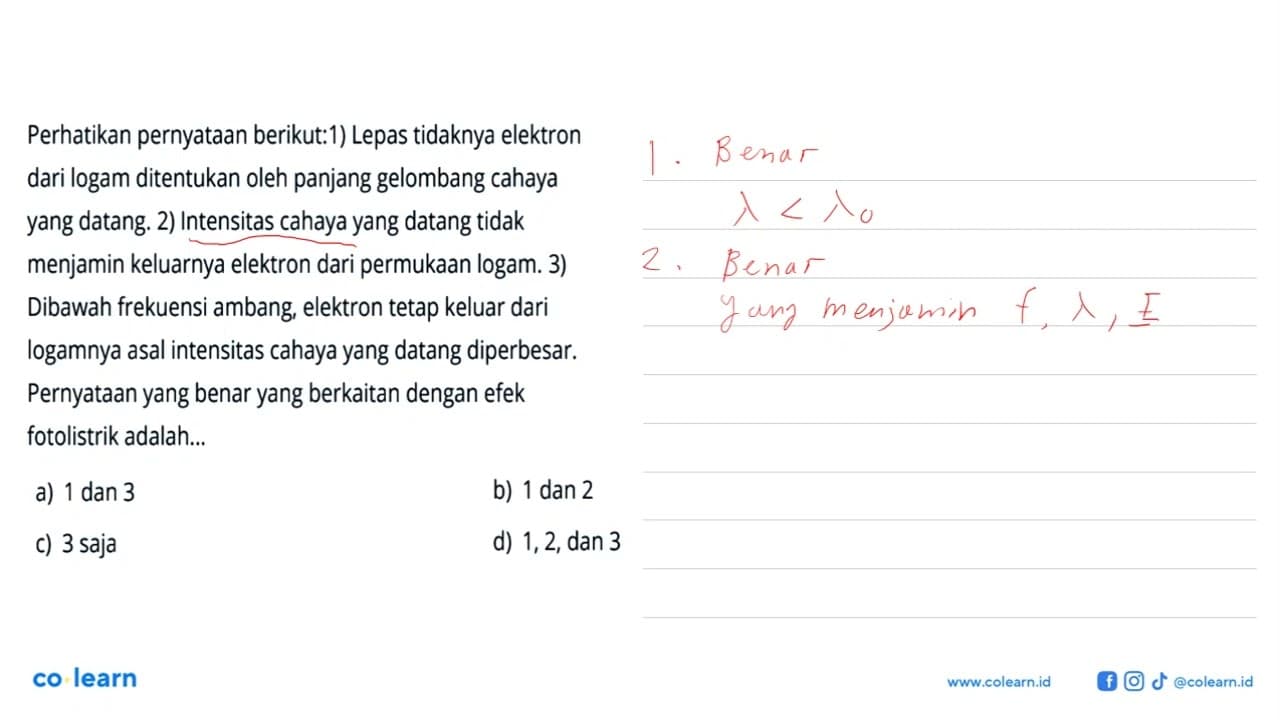 Perhatikan pernyataan berikut:1) Lepas tidaknya elektron
dari logam ditentukan oleh panjang gelombang cahaya
yang datang. 2) Intensitas cahaya yang datang tidak
menjamin keluarnya elektron dari permukaan logam. 3)
Dibawah frekuensi ambang, elektron tetap keluar dari
logamnya asal intensitas cahaya yang datang diperbesar.
Pernyataan yang benar yang berkaitan dengan efek
fotolistrik adalah...
a) 1 dan 3
b) 1 dan 2
c) 3 saja
d) 1, 2, dan 3
1. Benar
λ < λ₀
2. Benar
Yang menjamin f, λ, E
co learn
www.colearn.id
@colearn.id